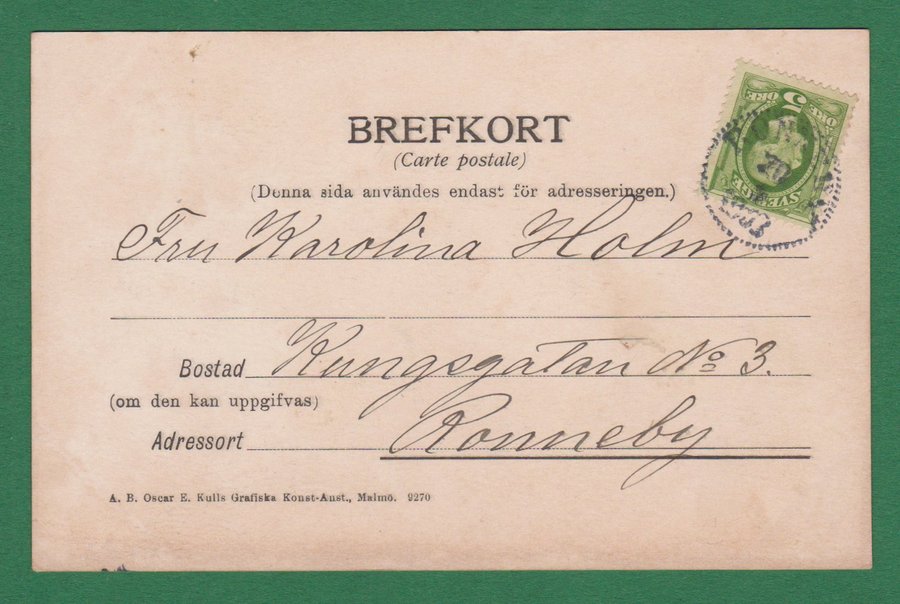 BREFKORT
(Carte postale)
(Denna sida användes endast för adresseringen.)
5
ÖRE ÖRE
SVERIGE
Fru Karolina Holm
Bostad Kungsgatan No 3.
(om den kan uppgifvas)
Adressort Ronneby
A. B. Oscar E. Kulls Grafiska Konst-Anst., Malmö. 9270